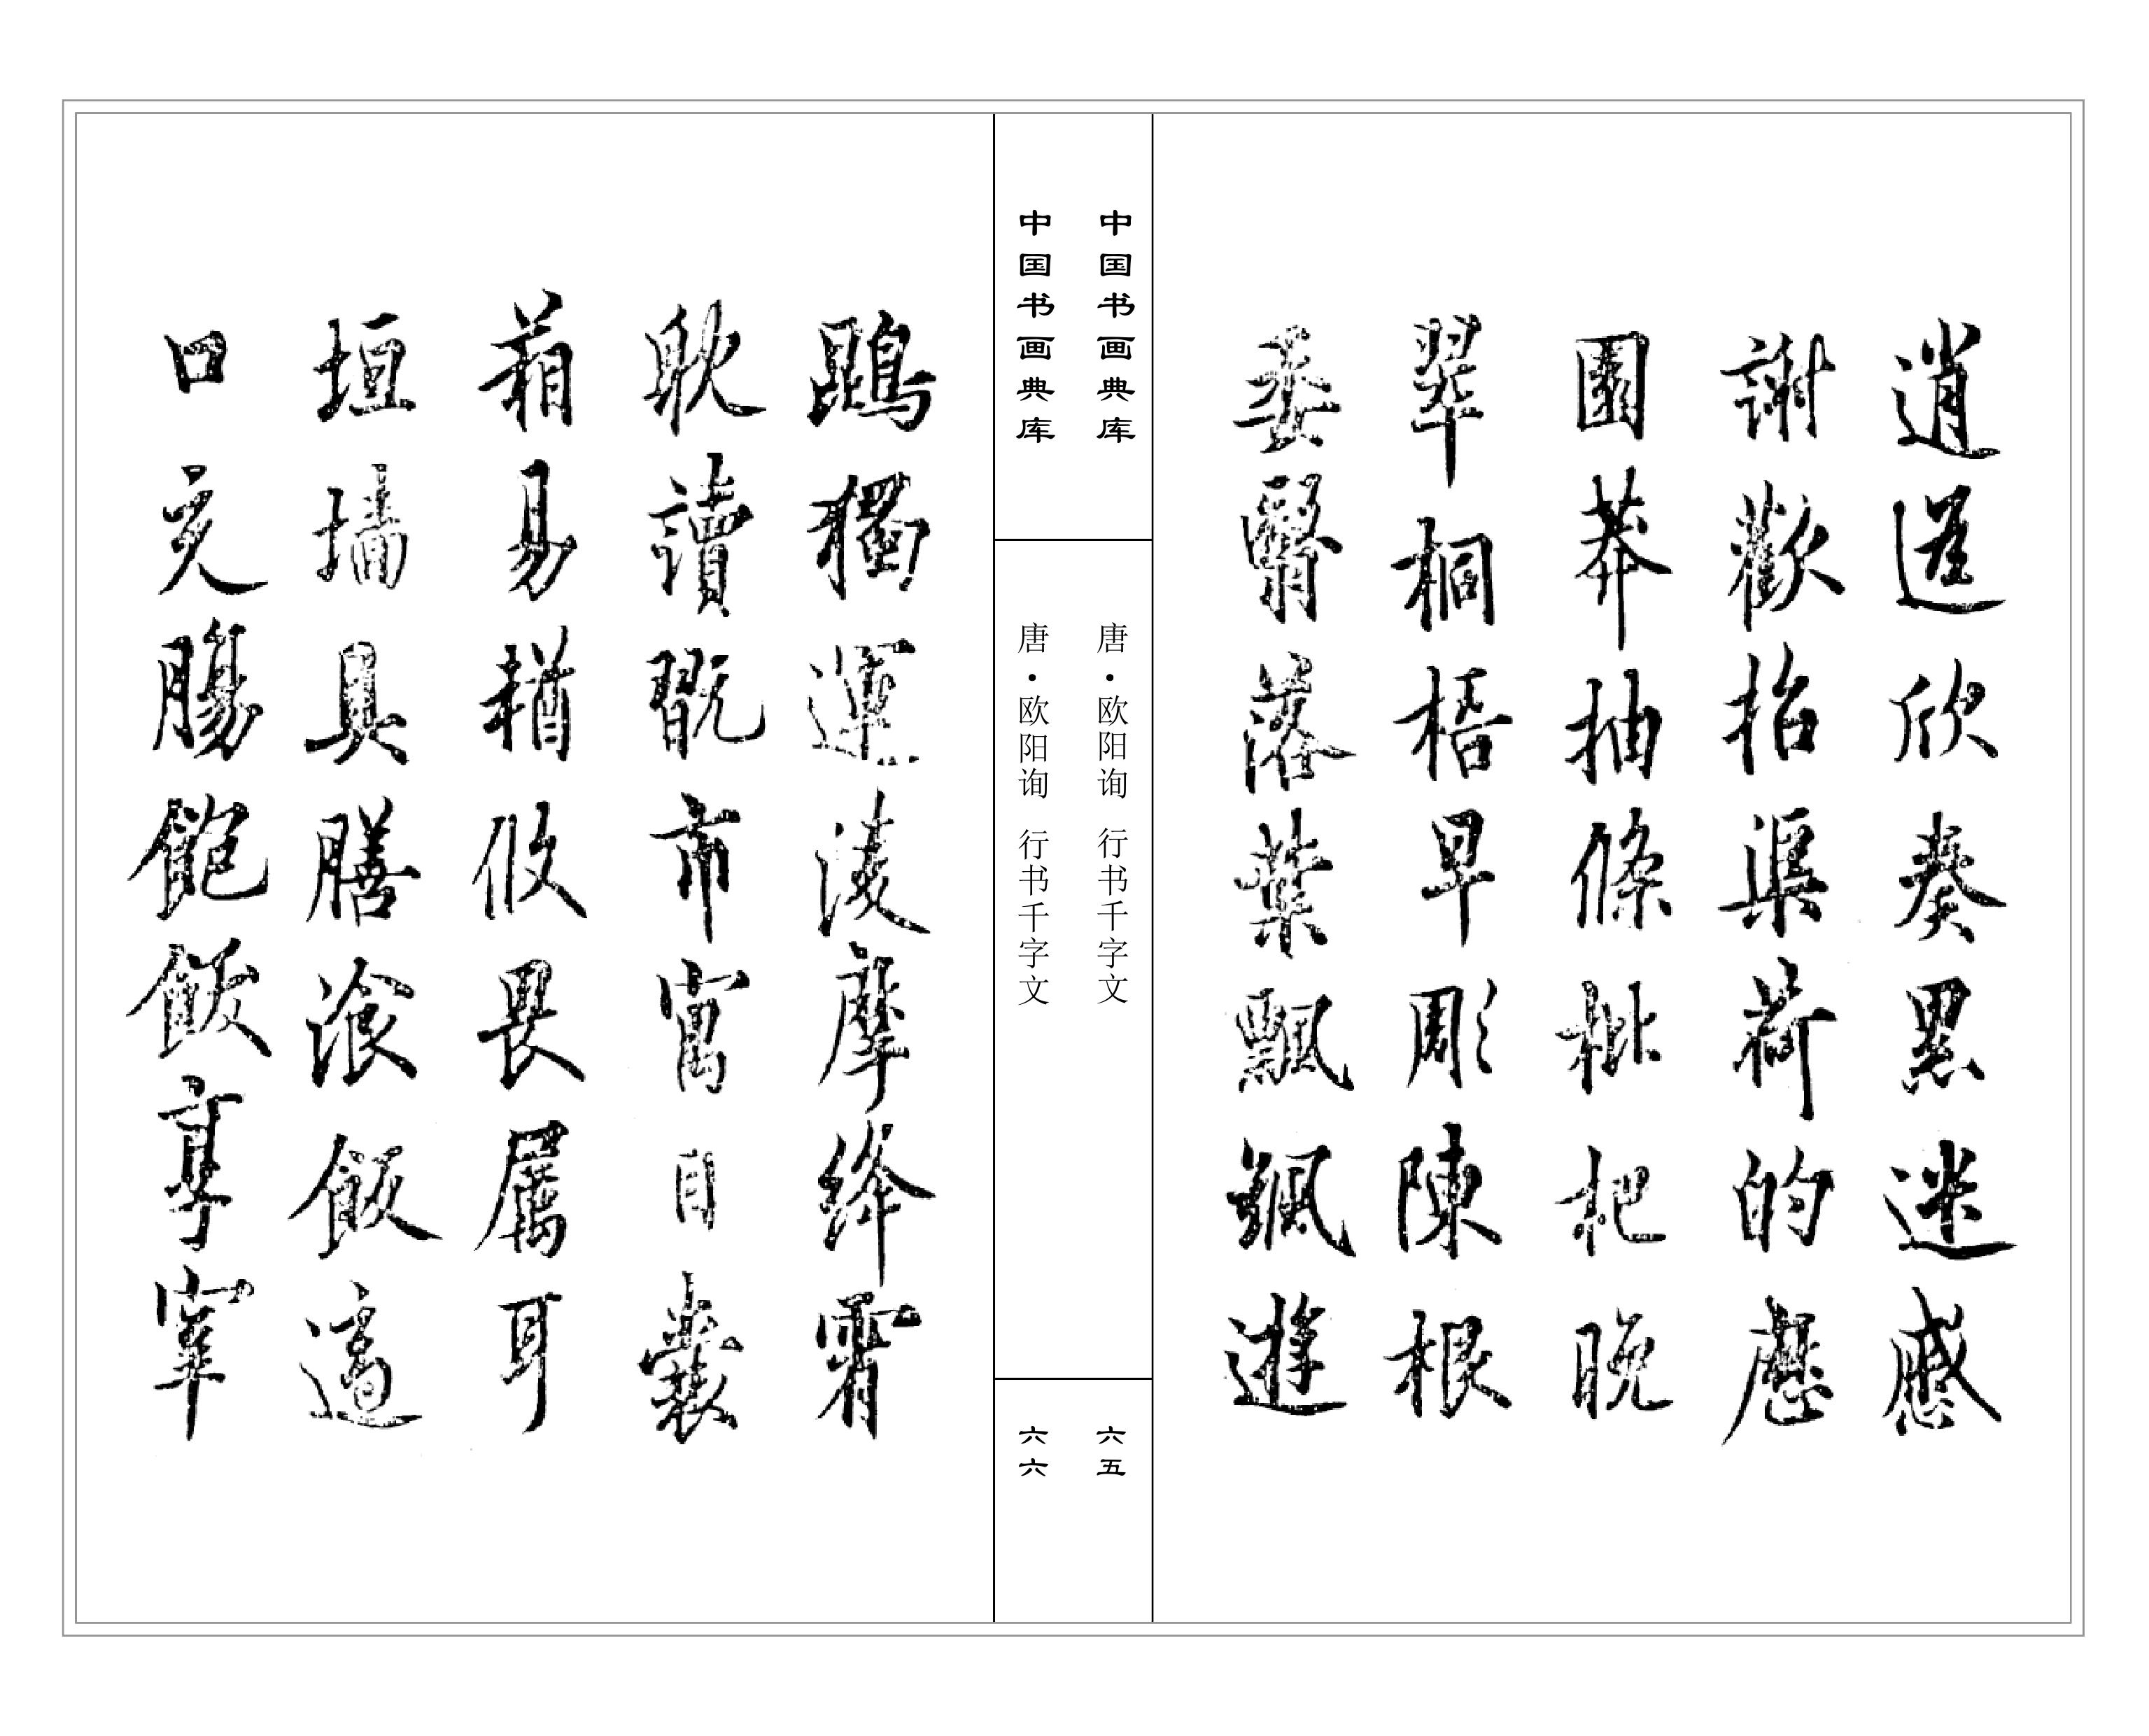 逍遥欣奏累迷慼
謝歡招渠荷的歷
園莽抽條枇杷晚
翠桐梧早彫陳根
委翳落葉飄颻遊
中国书画典库
唐·欧阳询 行书千字文
六五
中国书画典库
唐·欧阳询 行书千字文
六六
鵾獨運凌摩絳霄
耽讀翫市寓目囊
箱易輶攸畏属耳
垣墻具膳飡飯適
口充腸飽飫享宰